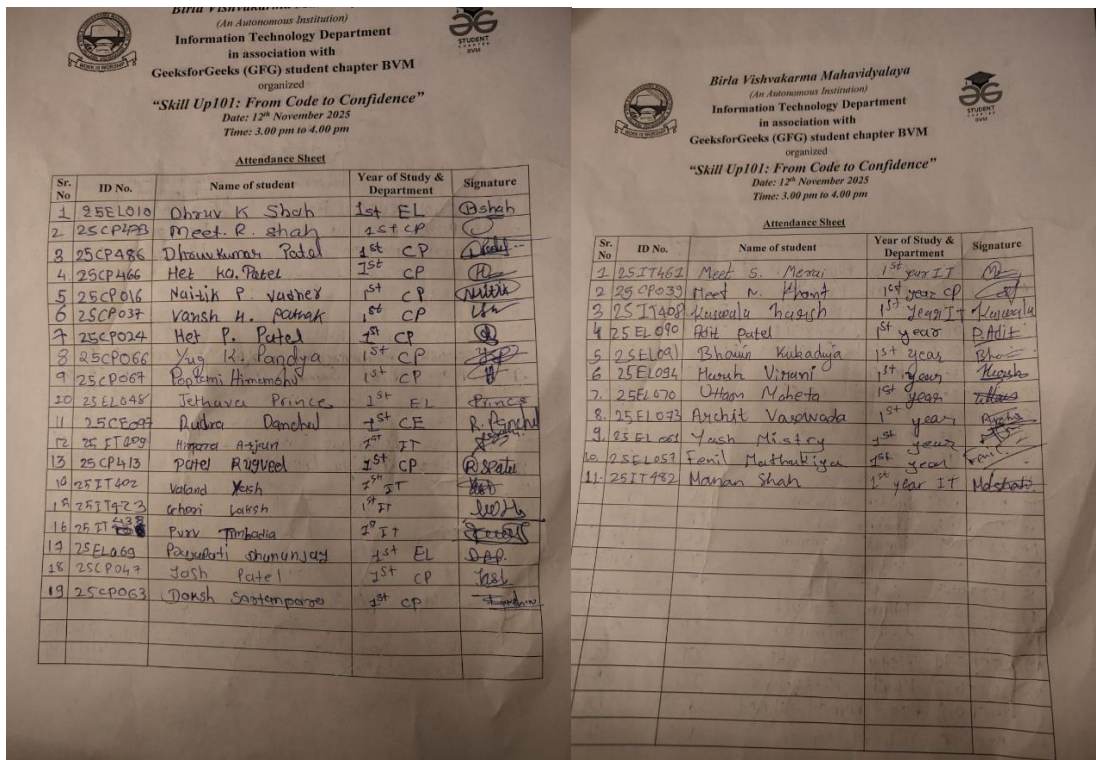 Birla Vishvakarma
(An Autonomous Institution)
Information Technology Department
in association with
GeeksforGeeks (GFG) student chapter BVM
organized
“Skill Up101: From Code to Confidence”
Date: 12th November 2025
Time: 3.00 pm to 4.00 pm
WORK IS WORSHIP
STUDENT
CHAPTER
BVM
Attendance Sheet
Sr. No ID No. Name of student Year of Study & Department Signature
1 25EL010 Dhruv K Shah 1st EL shah
2 Meet. R. shah 1st CP
3 25CP486 Dhruvkumar Patel 1st CP
4 25CP466 Het Ka. Patel 1st CP
5 25CP016 Naitik P. Vadher 1st CP
6 25CP037 Vansh H. Pathak 1st CP
7 25CP024 Het P. Patel 1st CP
8 25CP066 Yug K. Pandya 1st CP
9 25CP067 Himanshu 1st CP
10 25EL048 Jethava Prince 1st EL Prince
11 Rudra Panchal 1st CE R. Panchal
12 25IT409 Arjun 1st IT
13 25CP413 Patel Rugved 1st CP
14 25IT402 Valand Yash 1st IT
15 25IT423 Ghori Laksh 1st IT
16 25IT Purv Timbadia 1st IT
17 25EL069 1st EL
18 25CP047 Jash Patel 1st CP Jash
19 25CP063 Daksh 1st CP
Birla Vishvakarma Mahavidyalaya
(An Autonomous Institution)
Information Technology Department
in association with
GeeksforGeeks (GFG) student chapter BVM
organized
“Skill Up101: From Code to Confidence”
Date: 12th November 2025
Time: 3.00 pm to 4.00 pm
WORK IS WORSHIP
STUDENT
CHAPTER
BVM
Attendance Sheet
Sr. No ID No. Name of student Year of Study & Department Signature
1 25IT461 Meet S. 1st year IT
2 25CP039 Meet N. Khant 1st year CP
3 25IT408 1st year IT
4 25EL090 Adit Patel 1st year P. Adit
5 25EL091 Bhavin Kukadiya 1st year
6 25EL094 Harsh Virani 1st year Harsh
7. 25EL070 Uttam Maheta 1st year
8. 25EL073 Archit Vasavada 1st year
9. 25EL061 Yash Mistry 1st year
10. 25EL057 Fenil Mathukiya 1st year Fenil.
11. 25IT482 Manan Shah 1st year IT